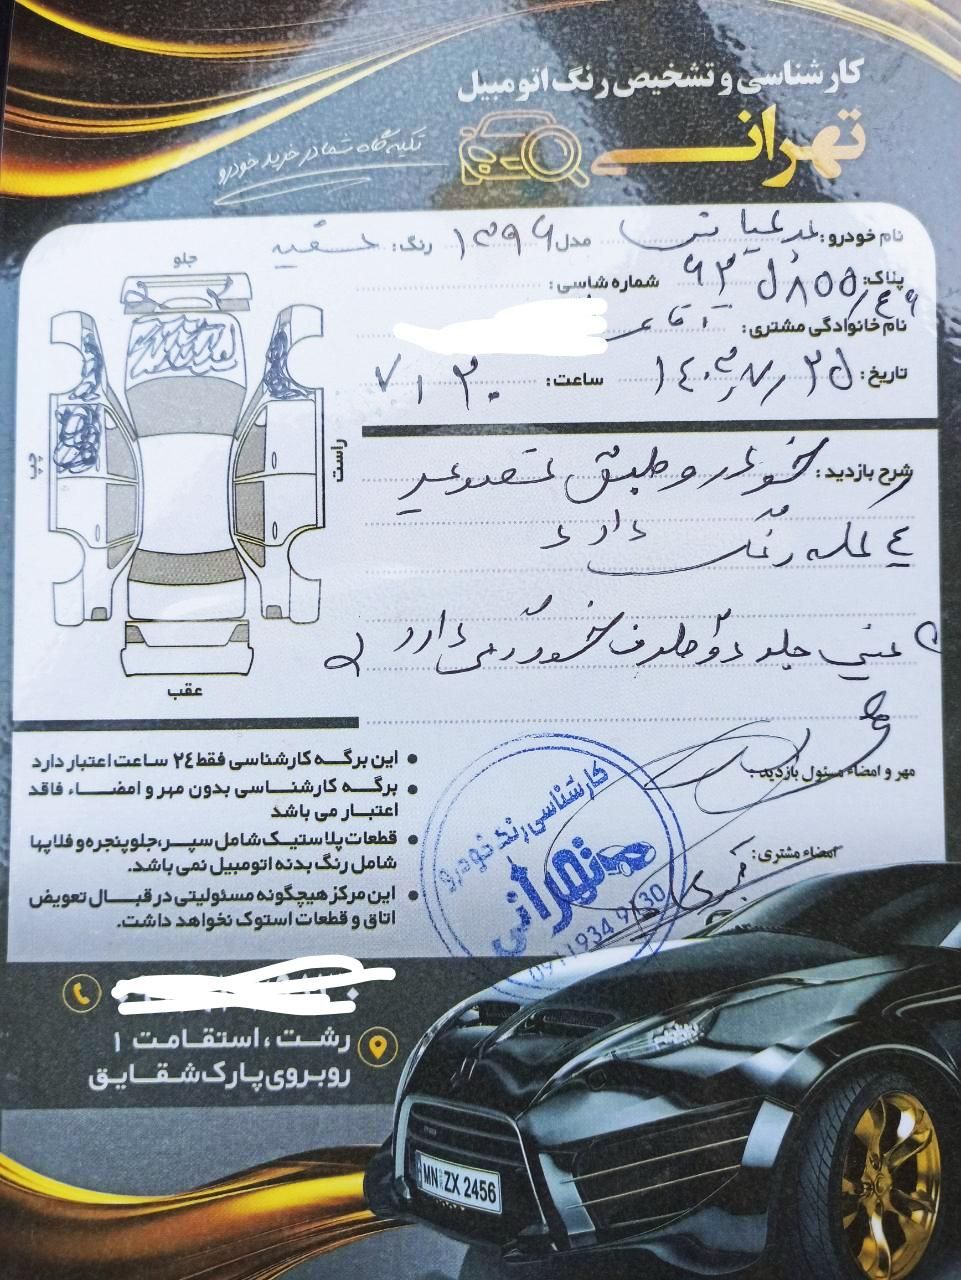 کارشناسی و تشخیص رنگ اتومبیل
تهرانی
تکیه گاه شما در خرید خودرو
نام خودرو: برلیانس مدل ۱۳۹۶ رنگ: سفید
پلاک: ۶۲ د ۸۵۵ / ۴۶ شماره شاسی:
نام خانوادگی مشتری: آقای
تاریخ: ساعت: ۷،۳۰
جلو
چپ
راست
عقب
شرح بازدید: خودرو طبق تصویر
۴ لکه رنگ دارد
سینی جلو دو طرف خوردگی دارد
مهر و امضاء مسئول بازدید:
امضاء مشتری:
این برگه کارشناسی فقط ۲٤ ساعت اعتبار دارد
برگه کارشناسی بدون مهر و امضاء، فاقد
اعتبار می باشد
قطعات پلاستیک شامل سپر، جلوپنجره و فلاپها
شامل رنگ بدنه اتومبیل نمی باشد.
این مرکز هیچگونه مسئولیتی در قبال تعویض
اتاق و قطعات استوک نخواهد داشت.
کارشناسی رنگ خودرو
تهرانی
0911934 9130
رشت، استقامت ۱
روبروی پارک شقایق
MN ZX 2456